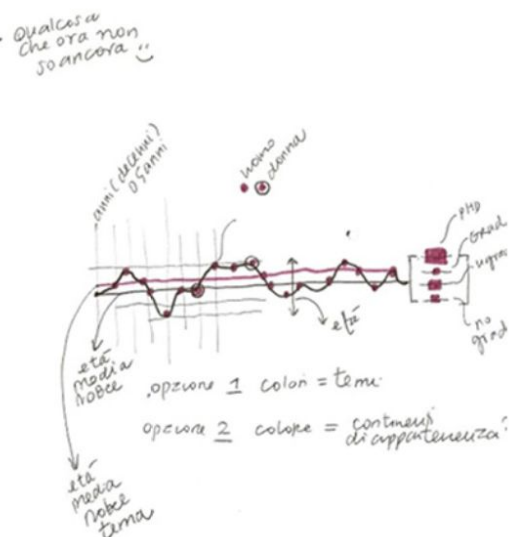 Qualcosa
che ora non
so ancora
anni (decenni)
o 5 anni
uomo
donna
PHD
Grad
ugrad
no
grad
età
età
media
nobel
opzione 1 colori = temi
opzione 2 colore = continenti
di appartenenza?
età
media
nobel
tema